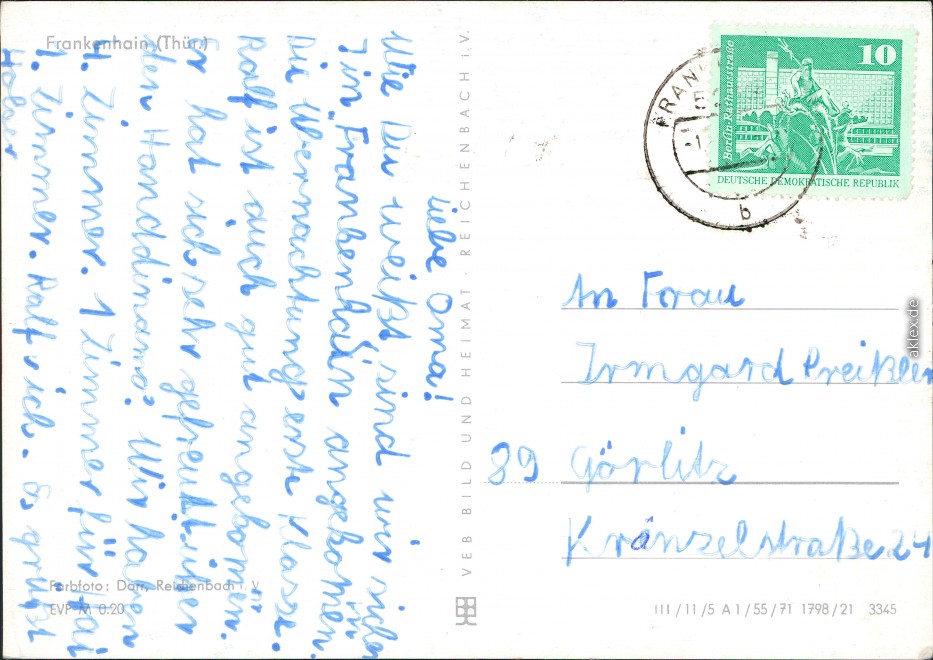 Frankenhain (Thür)
Liebe Oma!
Wie Du weißt sind wir sicher
in Frankenhain angekommen.
Die Übernachtung erste Klasse.
Ralf ist auch gut angekomen.
Er hat sich sehr gefreut über
den Handdinamo. Wir haben
4. Zimmer. 1 Zimmer für Kai
1. Zimmer. Ralf + ich. Es grüßt
Holger
Farbfoto: Darr, Reichenbach i. V.
EVP M 0.20
VEB BILD UND HEIMAT · REICHENBACH i. V.
10
Berlin-Rathausstraße
DEUTSCHE DEMOKRATISCHE REPUBLIK
b
An Frau
Irmgard Preißler
89 Görlitz
Kränzelstraße 24
III/11/5 A 1/55/71 1798/21 3345
aklex.de